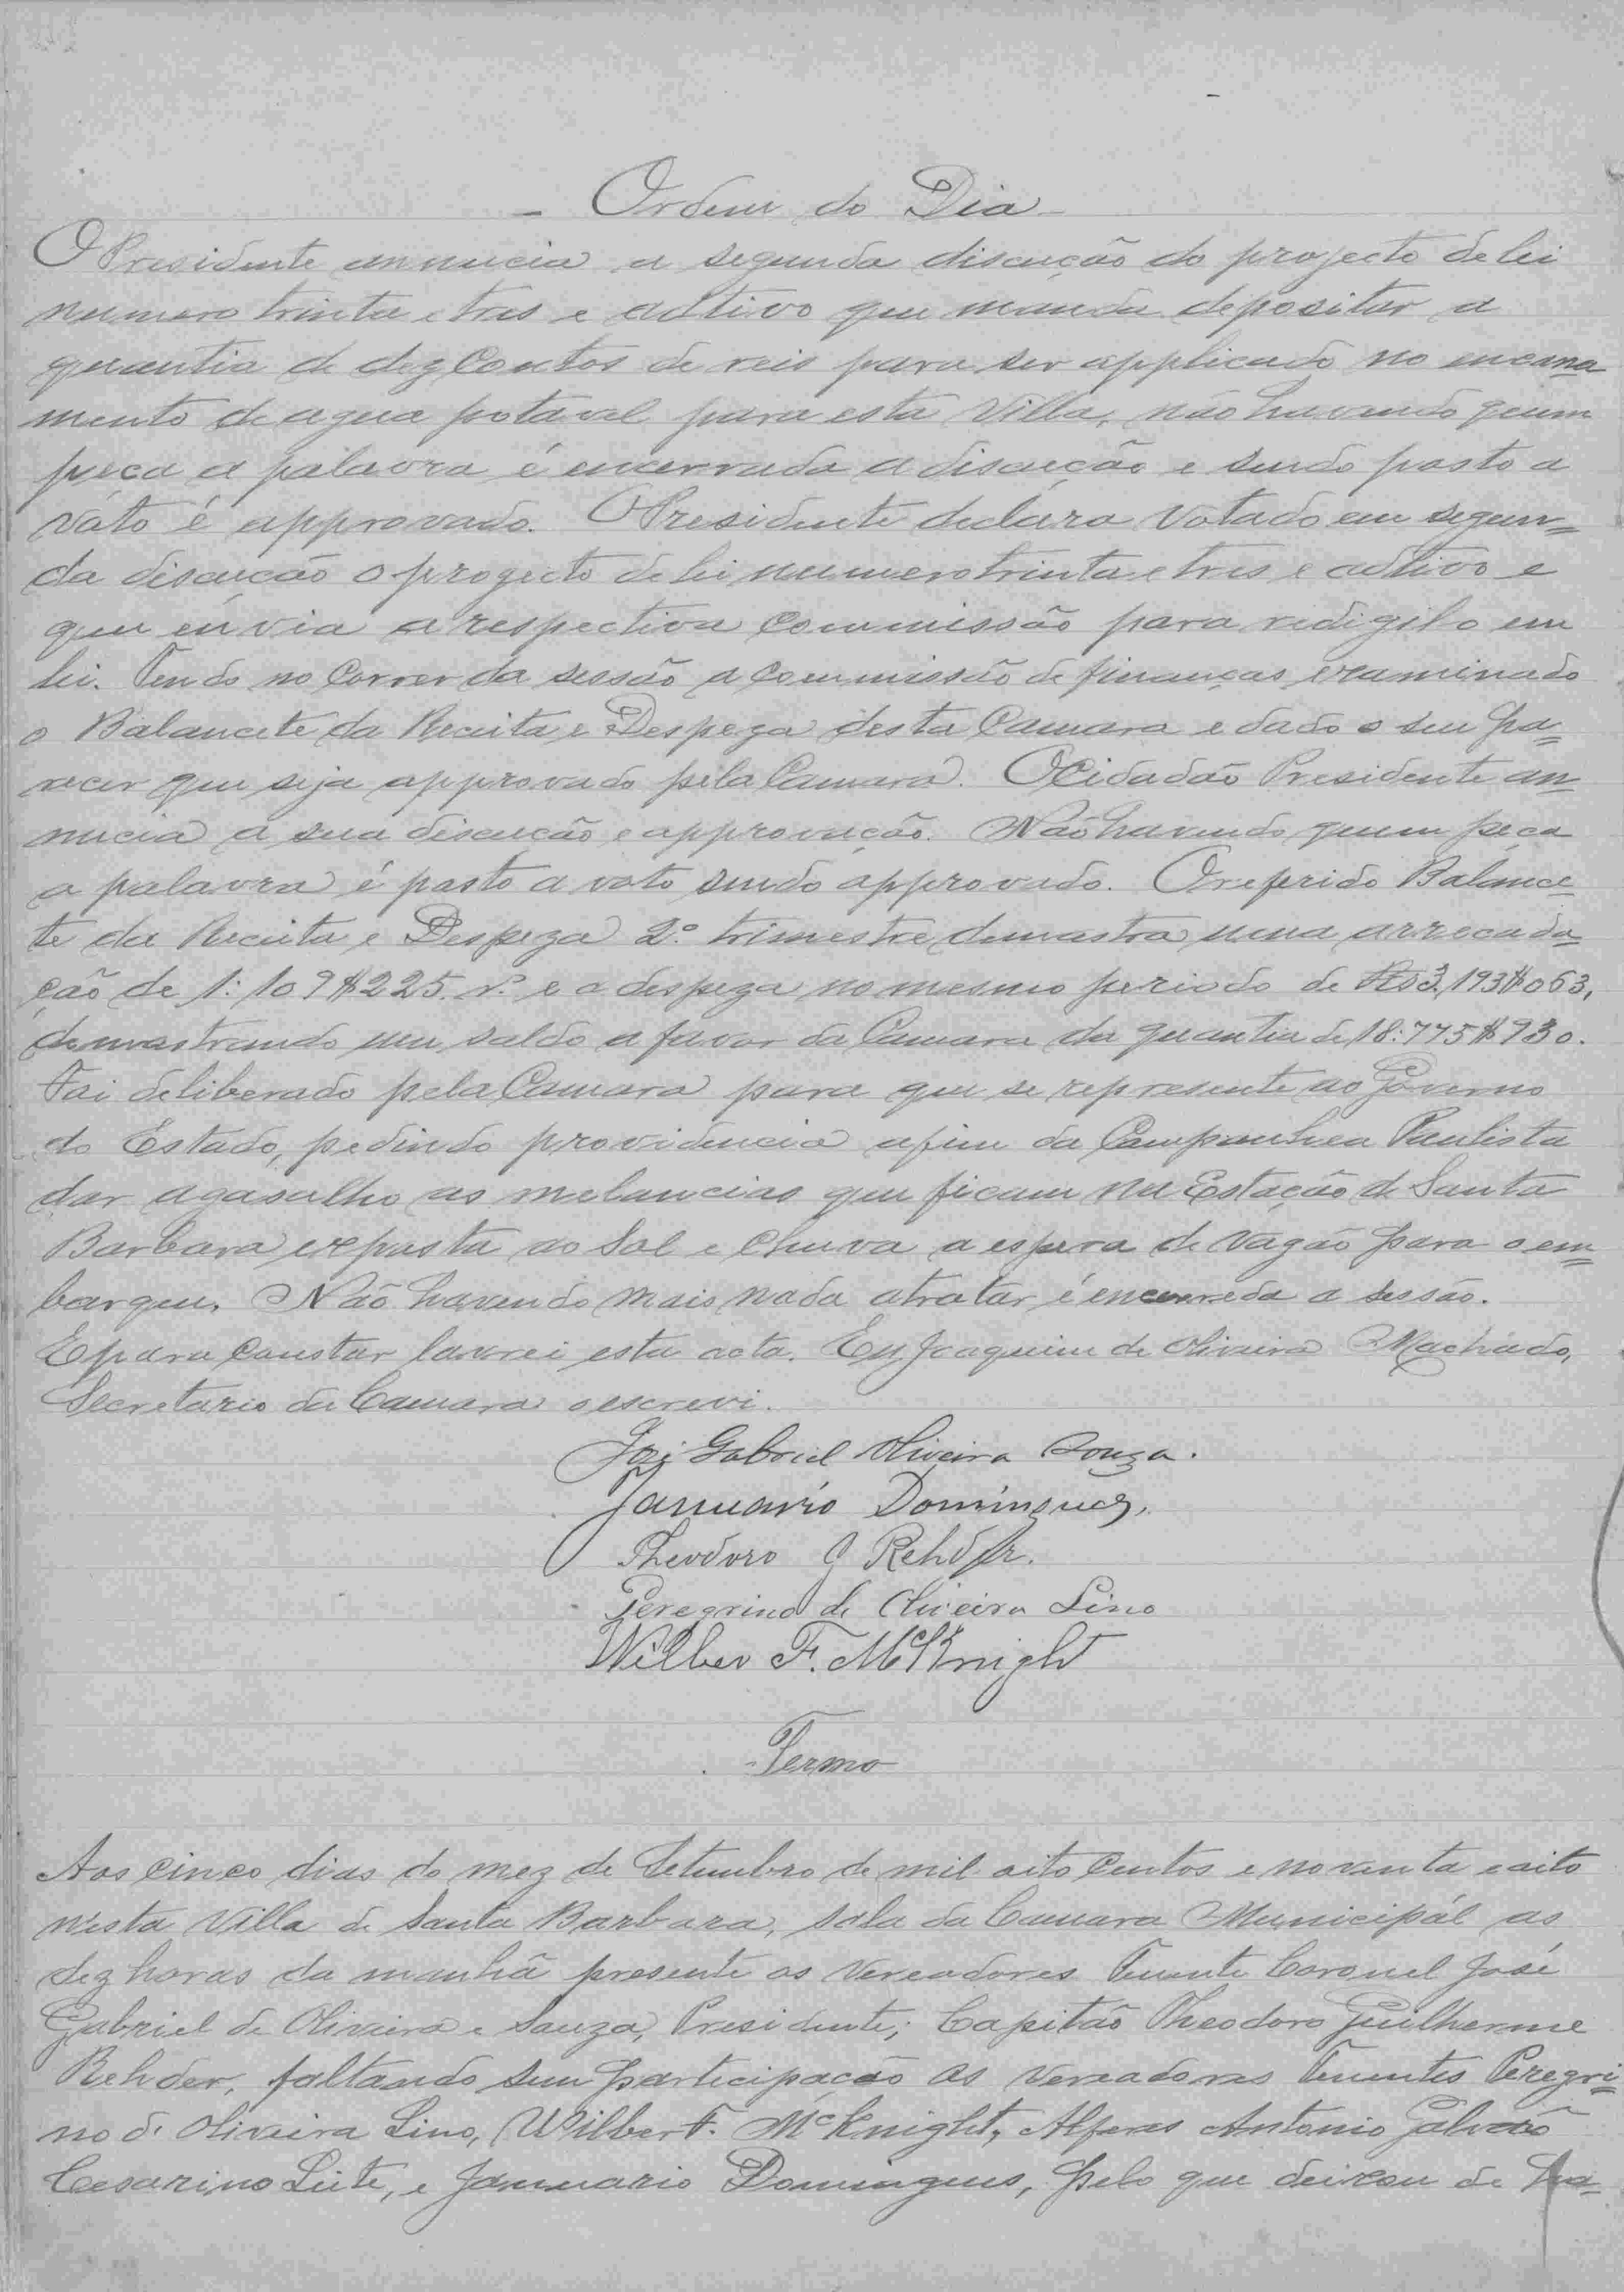 - Ordem do Dia -
O Presidente annuncia a segunda discução do projecto de lei
numero trinta e tres e aditivo que manda depositar a
quantia de dez Contos de reis para ser applicado no encana
mento de agua potavel para esta Villa, não havendo quem
peça a palavra é encerrada a discução e sendo posto a
voto é approvado. O Presidente declara votado em segun=
da discução o progecto de lei numero trinta e tres e aditivo e
que envia a respectiva Commissão para redigilo em
lei. Tendo no Correr da sessão a Commissão de finanças examinado
o Balancete da Receita e Despeza desta Camara e dado o seu pa=
recer que seja approvado pela Camara. O Cidadão Presidente an=
nucia a sua discução e approvação. Não havendo quem peça
a palavra é posto a voto sendo approvado. O referido Balance=
te da Receita e Despeza 2º trimestre demostra uma arrecada=
ção de 1:109$225 rs. e a despeza no mesmo periodo de Rs 3.193$063,
demostrando um saldo a favor da Camara da quantia de 18:775$930.
Foi deliberado pela Camara para que se represente ao Governo
do Estado, pedindo providencia afim da Companhea Paulista
dar agasalho as melancias que ficam na Estação de Santa
Barbara exposta ao Sol e Chuva a espera de vagão para o em=
barque. Não havendo mais nada a tratar é encerreda a sessão.
E para Constar lavrei esta acta. Eu, Joaquim de Oliveira Machado,
Secretario da Camara o escrevi.
José Gabriel Oliveira Souza.
Januario Domingues.
Theodoro G Rehder.
Peregrino de Oliveira Lino
Wilber F. McKnight
- Termo
Aos Cinco dias do mez de Setembro de mil oito Centos e noventa e oito
n'esta Villa de Santa Barbara, sala da Camara Municipál as
dez horas da manhã presente os Vereadores Tenente Coronel José
Gabriel de Oliveira e Souza, Presidente; Capitão Theodoro Guilherme
Rehder, faltando sem participação os Vereadores Tenentes Peregri=
no de Oliveira Lino, Wilber F. McKnight, Alferes Antonio Galvão
Cesarino Leite, e Januario Domingues, pelo que deixou de ha=